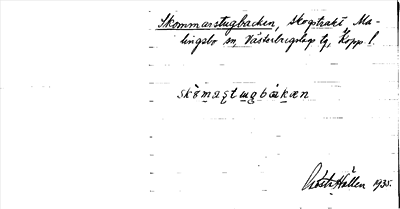 Skommarstugbacken, Skogstrakt Ma-
lingsbo sn Västerbergslags tg, Kopp. l.
skȯmaṣtugbȧkæn
Gösta Hallén 1935.